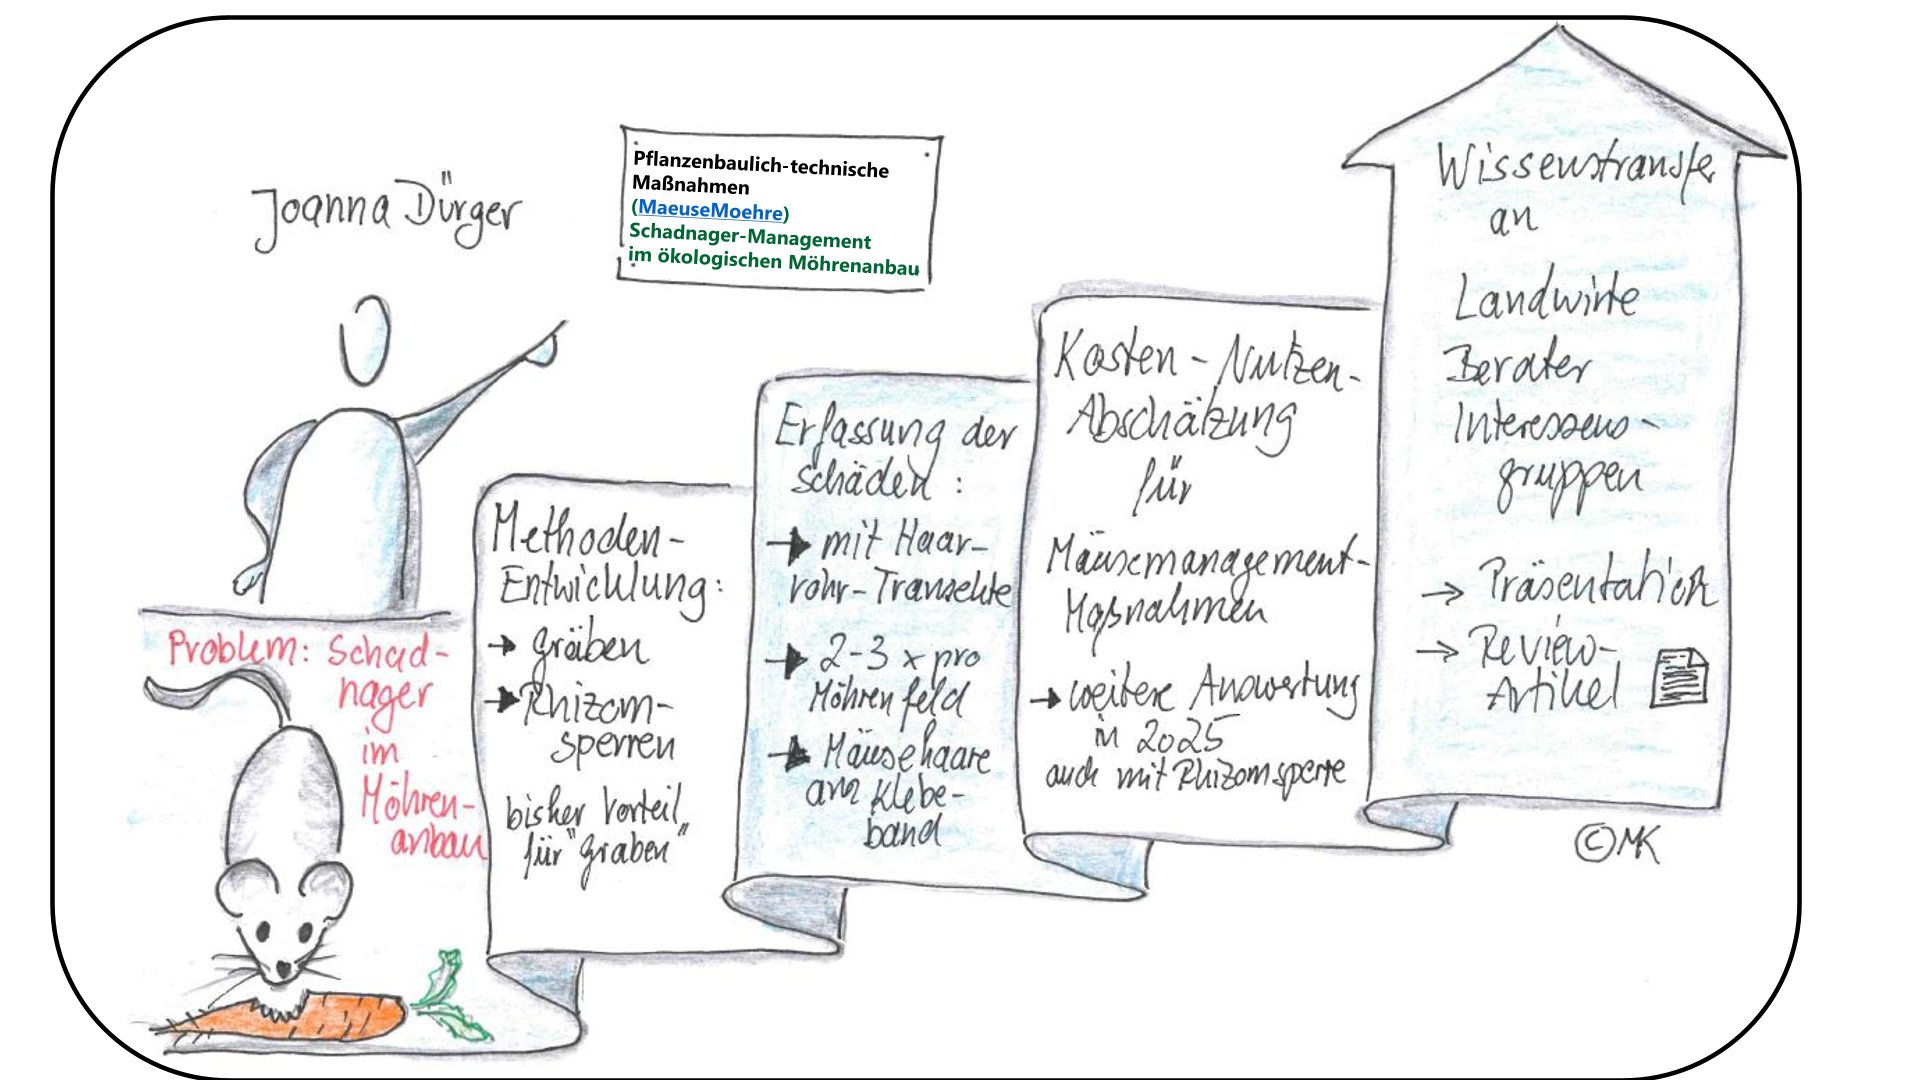 Joanna Dürger
Pflanzenbaulich-technische
Maßnahmen
(MaeuseMoehre)
Schadnager-Management
im ökologischen Möhrenanbau
Problem: Schad-
nager
im
Möhren-
anbau
Methoden-
Entwicklung:
→ Gräben
→ Rhizom-
sperren
bisher Vorteil
für "Graben"
Erfassung der
Schäden:
→ mit Haar-
rohr-Transekte
→ 2-3 x pro
Möhrenfeld
→ Mäusehaare
am Klebe-
band
Kosten-Nutzen-
Abschätzung
für
Mäusemanagement-
Maßnahmen
→ weitere Auswertung
in 2025
auch mit Rhizomsperre
Wissenstransfer
an
Landwirte
Berater
Interessens-
gruppen
→ Präsentation
→ Review-
Artikel
© MK